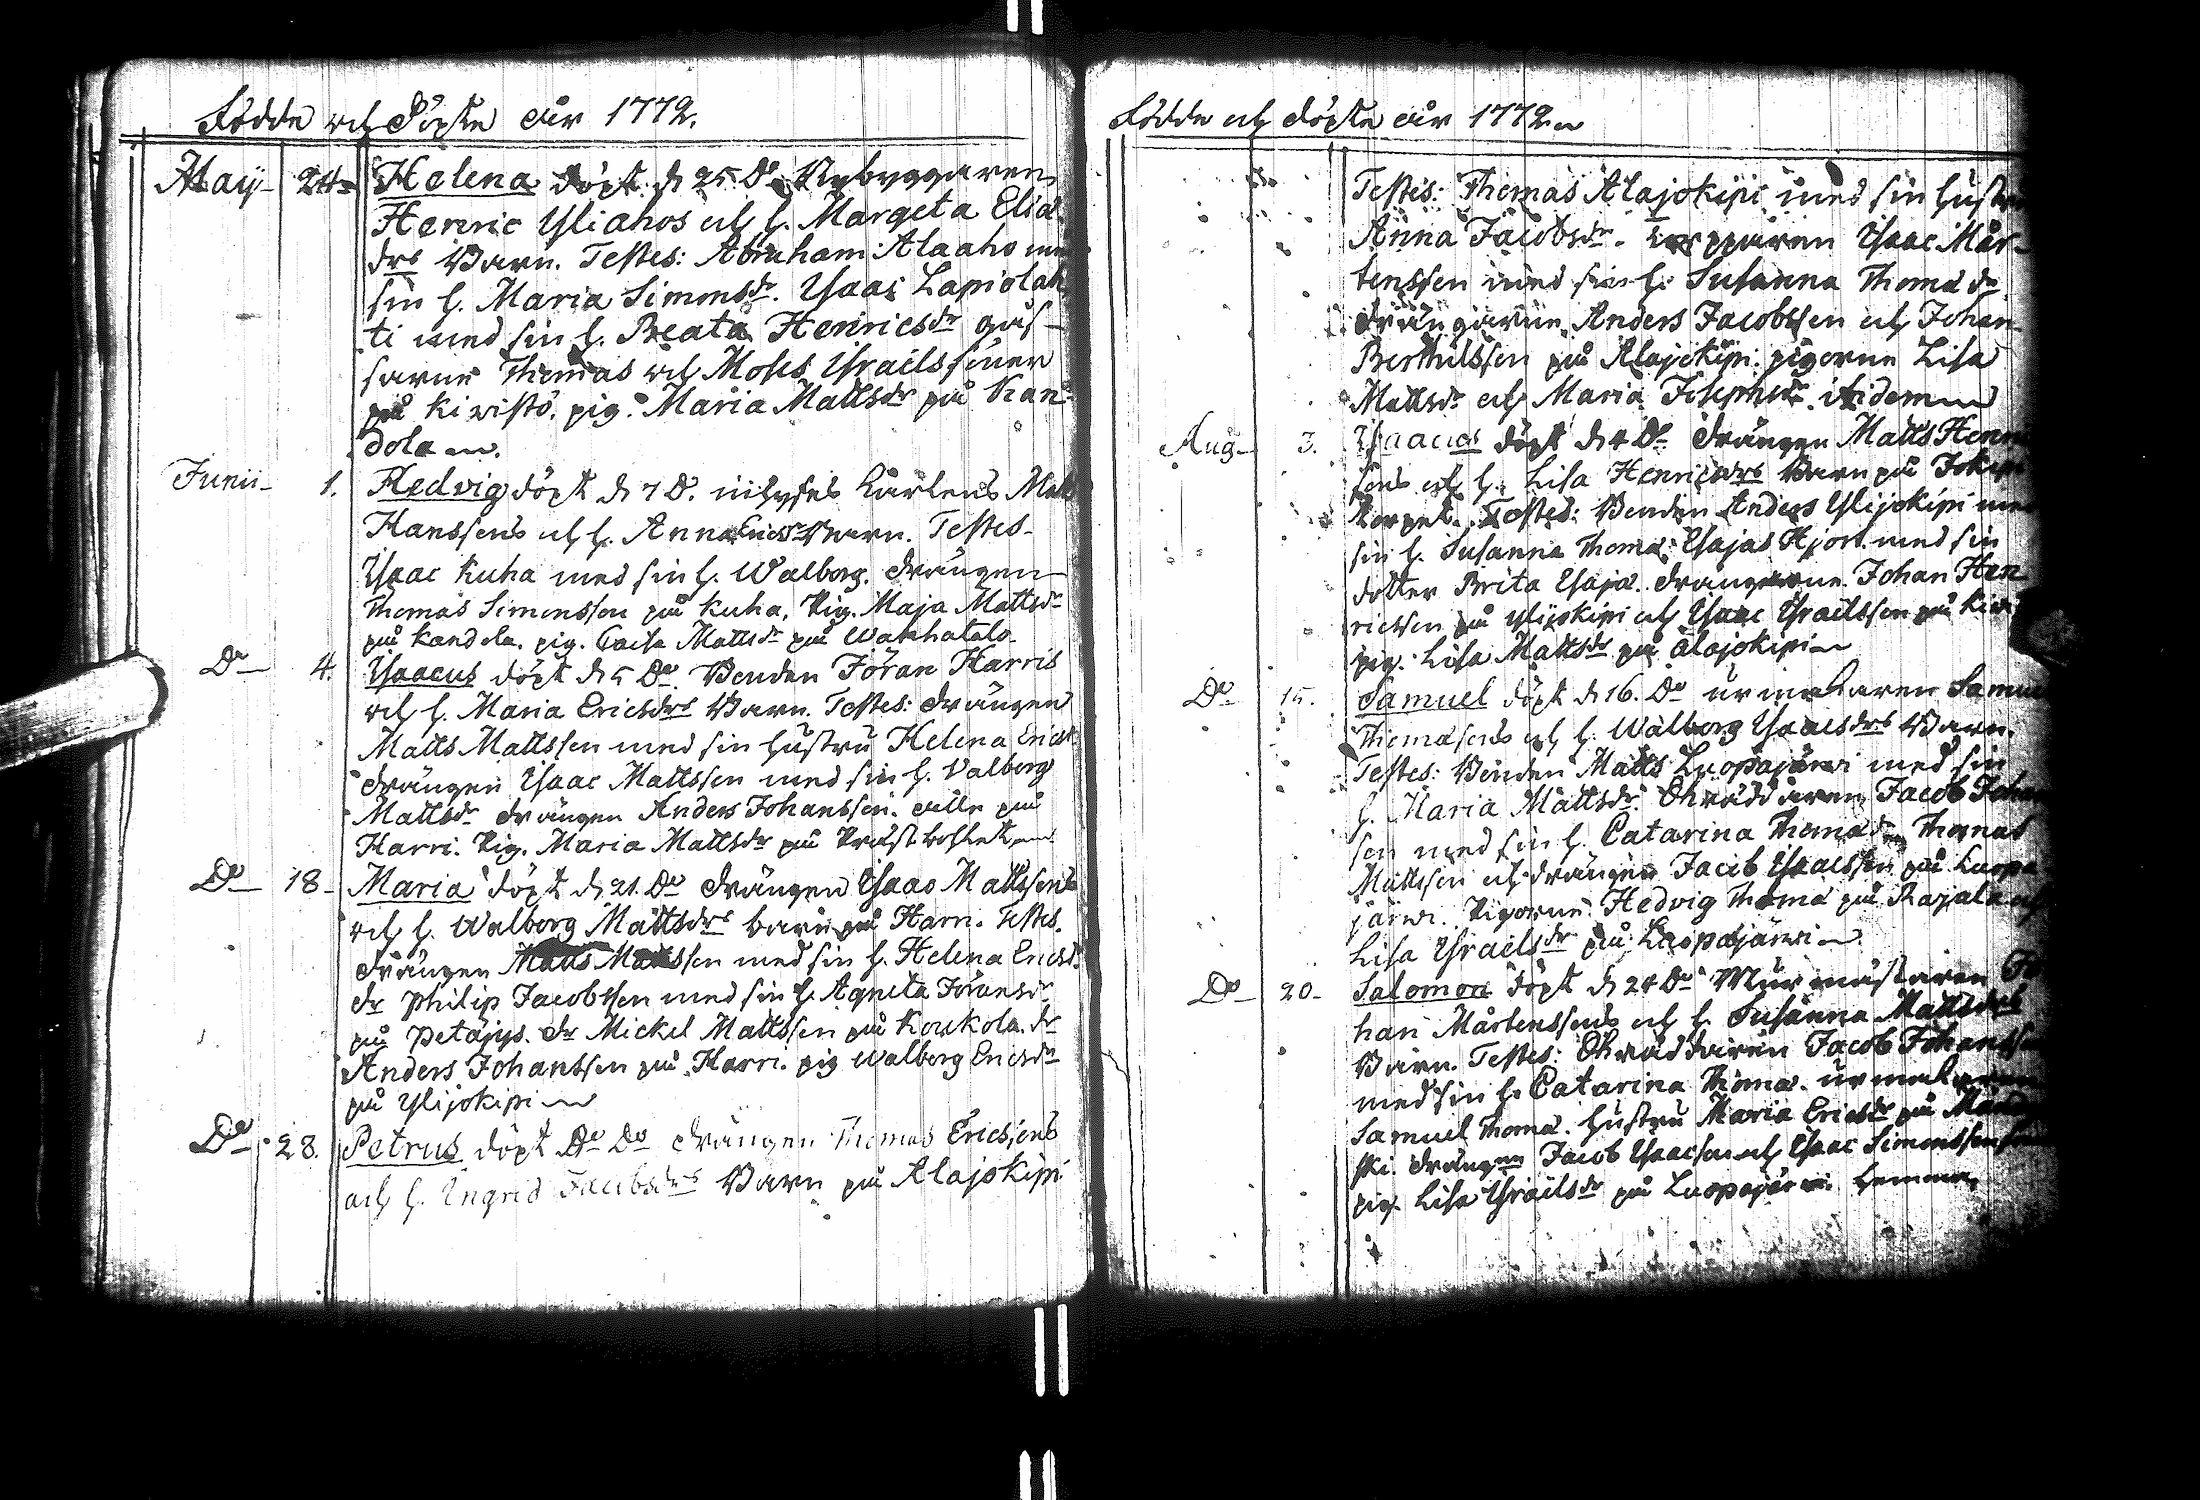 Födde och Döpte år 1772.
May 24 Helena döpt d. 25 Do Nybyggaren
Henric Yliahos och h. Margeta Elia
drs Barn. Testes: Abraham Alaaho
sin h. Maria Simonsdr. Isaac Lapiolah
ti med sin h. Beata Henricsdr
Thomas och Moses Israels söner
på Kiwistö. pig. Maria Mattsdr på Kan
dola
Junii 1. Hedvig döpt d. 7 D. Karlens
Hanssons och h. Anna Ericsdrs Barn. Testes
Isaac Kuha med sin h. Walborg. drängen
Thomas Simonsson på Kuha. Pig. Maja Mattsdr
på Kandola. pig. Caisa Mattsdr på Wanhatalo.
Do 4. Isaacus döpt d. 5 Do. Bonden Jöran Harris
och h. Maria Ericsdrs Barn. Testes: drängen
Matts Mattsson med sin hustru Helena Erics
drängen Isaac Mattsson med sin h. Valborg
Mattsdr drängen Anders Johansson. alle på
Harri. Pig. Maria Mattsdr på Prästbolet
Do 18 Maria döpt d. 21. Do drängen Isaac Mattssons
och h. Walborg Mattsdrs barn på Harri. Testes.
drängen Matts Mattsson med sin h. Helena Ericsd.
dr Philip Jacobsson med sin h. Agneta Jöransdr
på Petäjys. dr Mickel Mattsson på Koukola. dr
Anders Johansson på Harri. pig Walborg Ericsdr
på Ylijokipi
Do 28. Petrus döpt Do Do drängen Thomas Ericssons
och h. Ingrid Jacobsdrs Barn på Alajokipi
Födde och döpte år 1772
Testes: Thomas Alajokipi med sin hustru
Anna Jacobsdr. Isaac Mår
tensson med sin h: Susanna Thomædr.
drängarne Anders Jacobsson och Johan
Berthilsson på Alajokipi. pigorne Lisa
Mattsdr och Maria Josephsdr. ibidem
Aug 3. Isaacus döpt d. 4 Do drängen Matts Henric
sons och h. Lisa Henricsdrs Barn på Jokipi
Torpet. Testes: Bonden Anders Ylijokipi
sin h. Susanna Thomæ: Esajas Hjort med sin
dotter Brita Esajæ. drängarne Johan Hen
ricsson på Ylijokipi och Isaac Israelsson på
pig. Lisa Mattsdr på Alajokipi
Do 15. Samuel döpt d. 16. Do urmakaren Samuel
Thomæsons och h. Walborg Isaacsdrs Barn.
Testes: Bonden Matts Luopajärwi med sin
h. Maria Mattsdr Jacob Johan
son med sin h. Catarina Thomædr Thomas
Mattsson och drängen Jacob Isaacsson på Luopa
järwi. Pigorne Hedvig Thomæ på Rajala och
Lisa Israelsdr på Luopajärwi
Do 20 Salomon döpt d. 24 Do Murmästaren Jo
han Mårtenssons och h. Susanna Mattsdrs
Barn. Testes: Jacob Johansson
med sin h. Catarina Thomæ. urmakaren
Samuel Thomæ. hustru Maria Ericsdr på
drängen Jacob Isaacson och Isaac Simonsson
pig. Lisa Israelsdr på Luopajärwi hemman